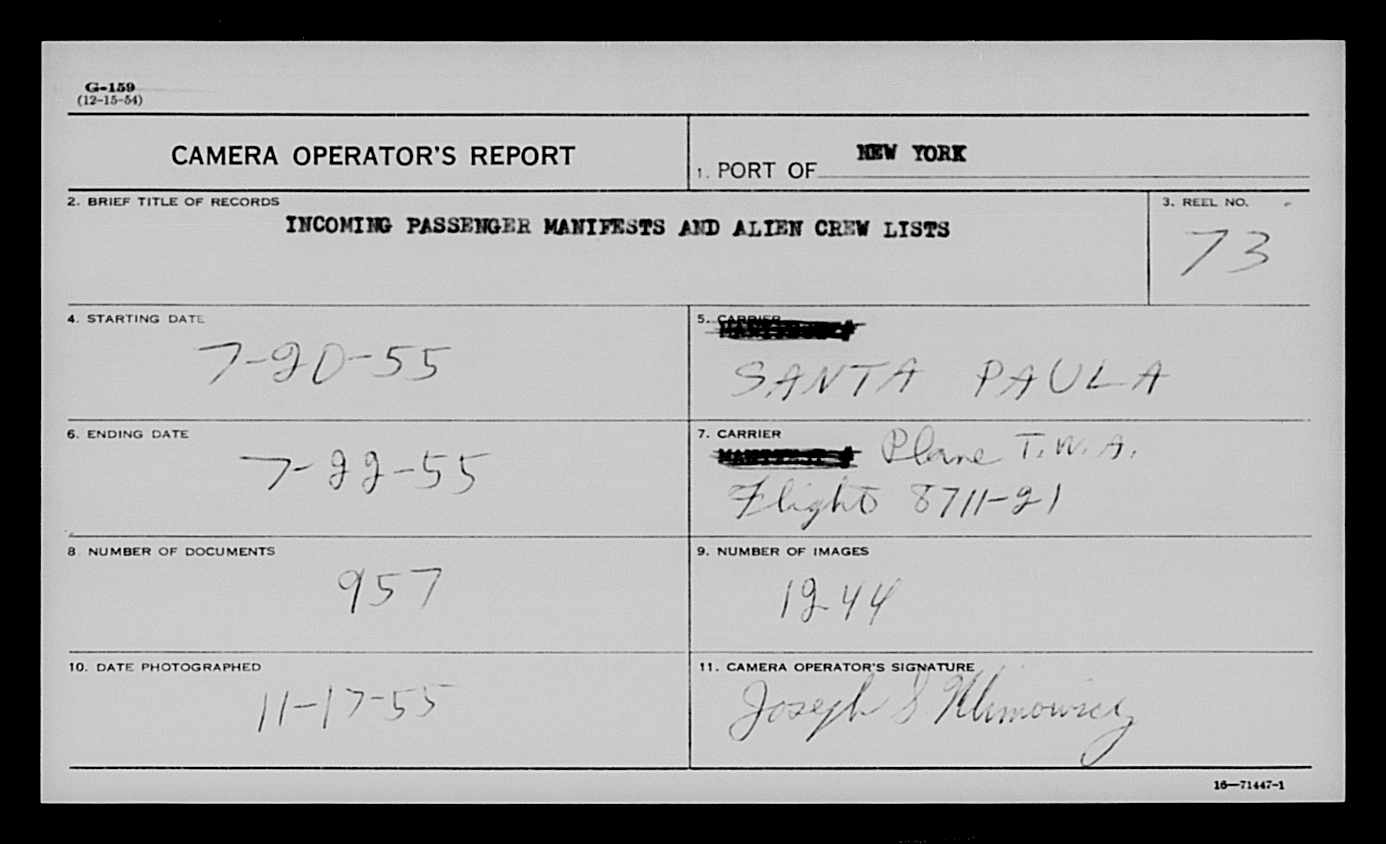 G-159
(12-15-54)
CAMERA OPERATOR'S REPORT
1. PORT OF NEW YORK
2. BRIEF TITLE OF RECORDS
INCOMING PASSENGER MANIFESTS AND ALIEN CREW LISTS
3. REEL NO.
73
4. STARTING DATE
7-20-55
5. CARRIER
SANTA PAULA
6. ENDING DATE
7-22-55
7. CARRIER
Plane T.W.A.
Flight 8711-21
8. NUMBER OF DOCUMENTS
957
9. NUMBER OF IMAGES
1244
10. DATE PHOTOGRAPHED
11-17-55
11. CAMERA OPERATOR'S SIGNATURE
Joseph S Klimowicz
16—71447-1